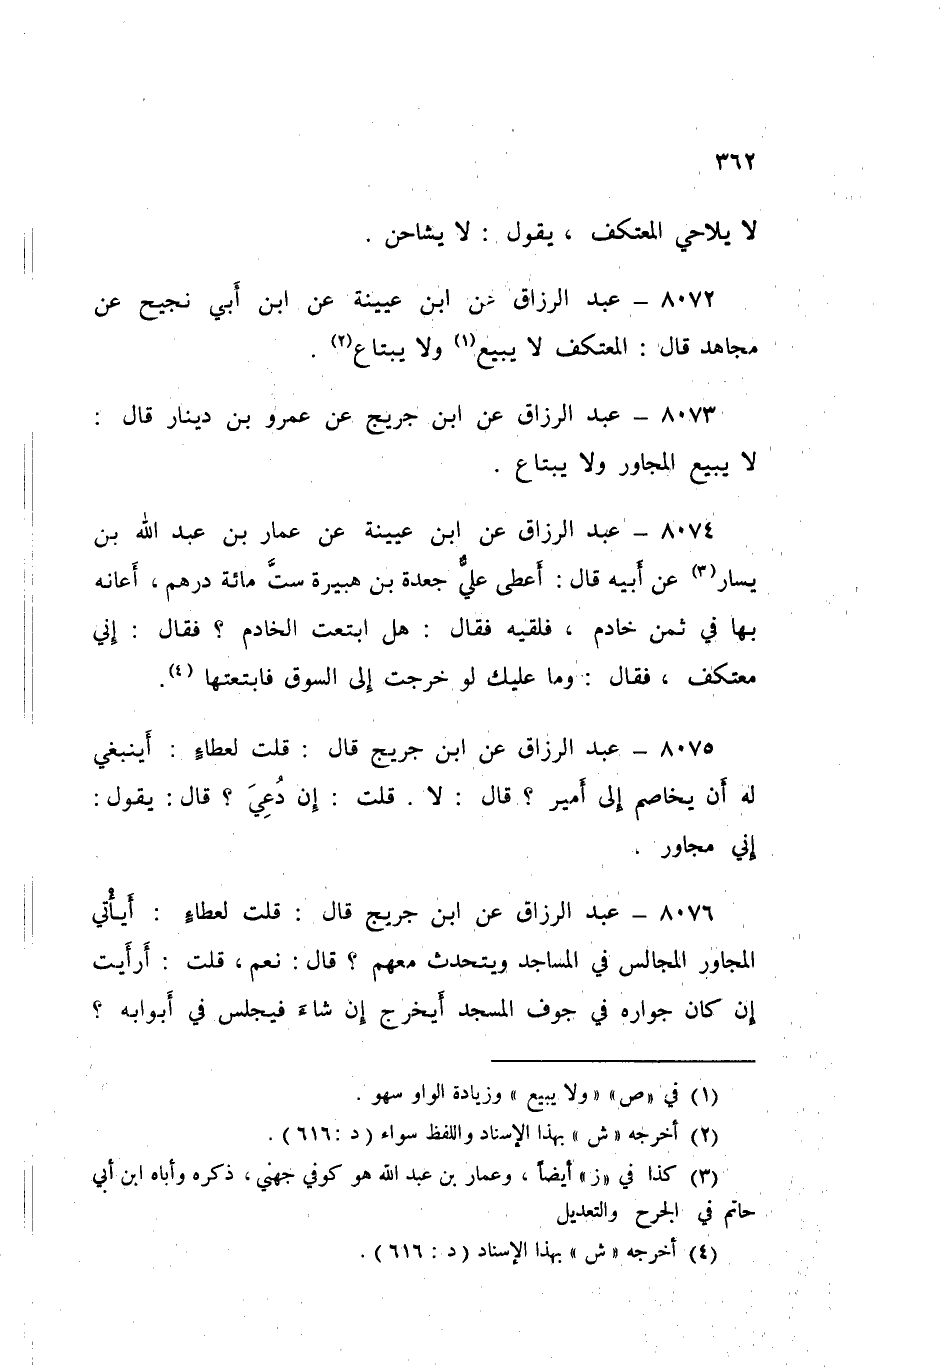 ٣٦٢
لا يلاحي المعتكف ، يقول : لا يشاحن .
٨٠٧٢ – عبد الرزاق عن ابن عيينة عن ابن أبي نجيح عن
مجاهد قال : المعتكف لا يبيع(١) ولا يبتاع(٢) .
٨٠٧٣ – عبد الرزاق عن ابن جريج عن عمرو بن دينار قال :
لا يبيع المجاور ولا يبتاع .
٨٠٧٤ – عبد الرزاق عن ابن عيينة عن عمار بن عبد الله بن
يسار(٣) عن أبيه قال : أعطى عليٌّ جعدة بن هبيرة ستَّ مائة درهم ، أعانه
بها في ثمن خادم ، فلقيه فقال : هل ابتعت الخادم ؟ فقال : إني
معتكف ، فقال : وما عليك لو خرجت إلى السوق فابتعتها (٤).
٨٠٧٥ – عبد الرزاق عن ابن جريج قال : قلت لعطاءٍ : أينبغي
له أن يخاصم إلى أمير ؟ قال : لا . قلت : إن دُعِيَ ؟ قال : يقول :
إني مجاور .
٨٠٧٦ – عبد الرزاق عن ابن جريج قال : قلت لعطاءٍ : أيأُتي
المجاور المجالس في المساجد ويتحدث معهم ؟ قال : نعم ، قلت : أرأيت
إن كان جواره في جوف المسجد أيخرج إن شاءَ فيجلس في أبوابه ؟
(١) في «ص» «ولا يبيع » وزيادة الواو سهو .
(٢) أخرجه « ش » بهذا الإسناد واللفظ سواء ( د : ٦١٦ ) .
(٣) كذا في «ز» أيضاً ، وعمار بن عبد الله هو كوفي جهني ، ذكره وأباه ابن أبي
حاتم في الجرح والتعديل
(٤) أخرجه « ش » بهذا الإسناد ( د : ٦١٦ ) .